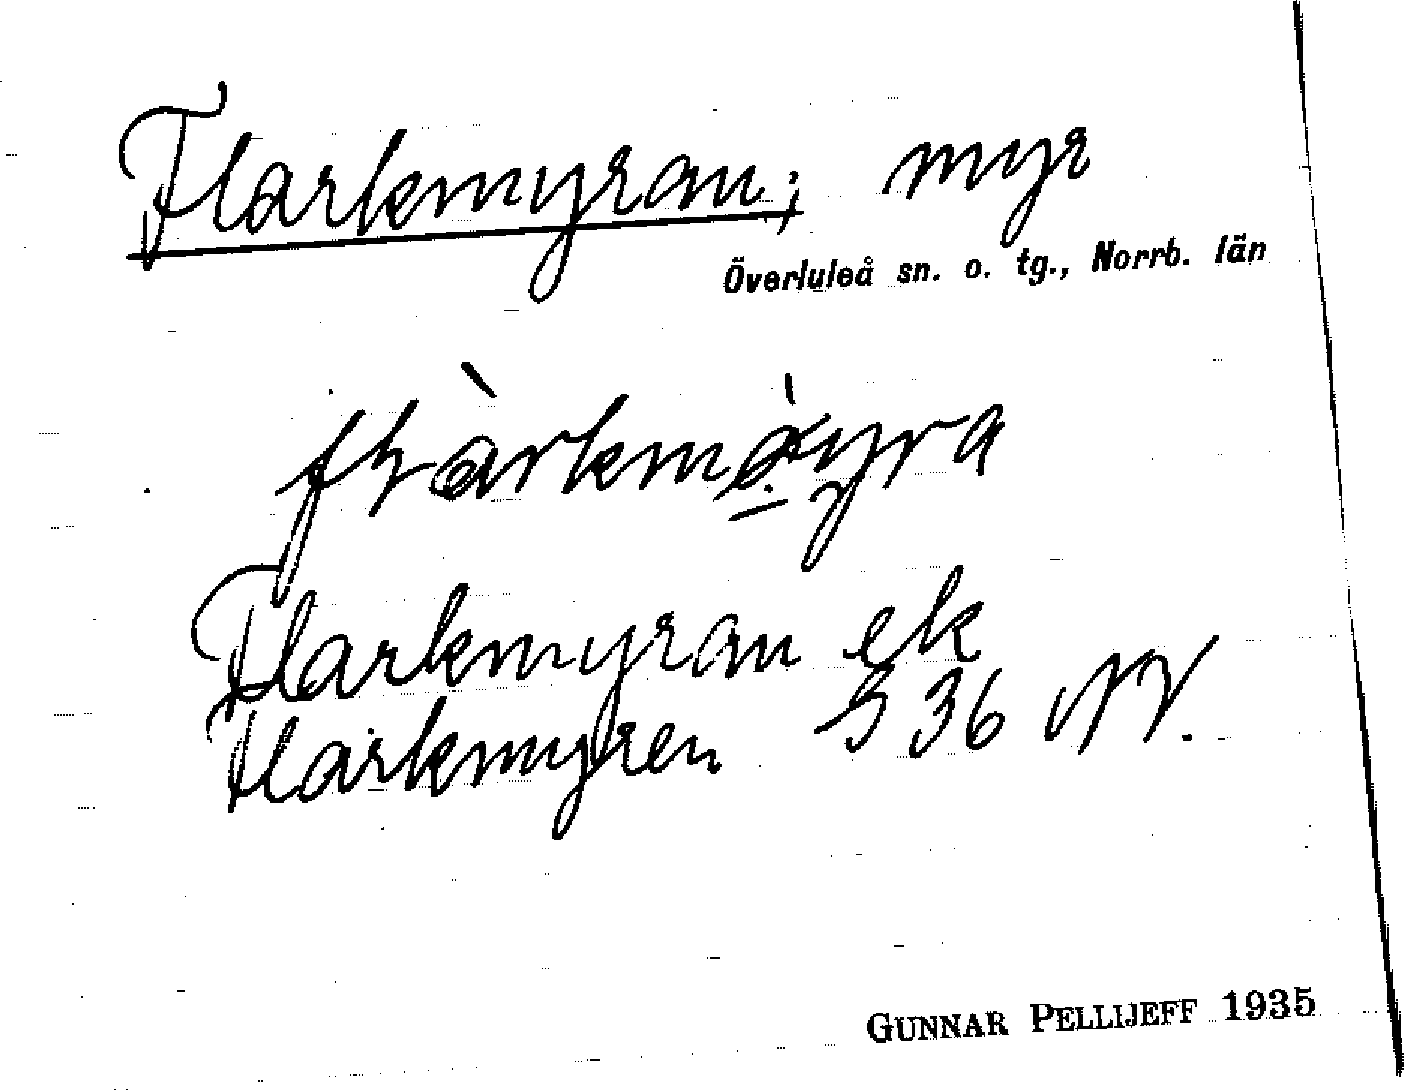 Flarkmyran; myr
Överluleå sn. o. tg., Norrb. län
Flarkmyran ek
Flarkmyren S 36 NV.
GUNNAR PELLIJEFF 1935